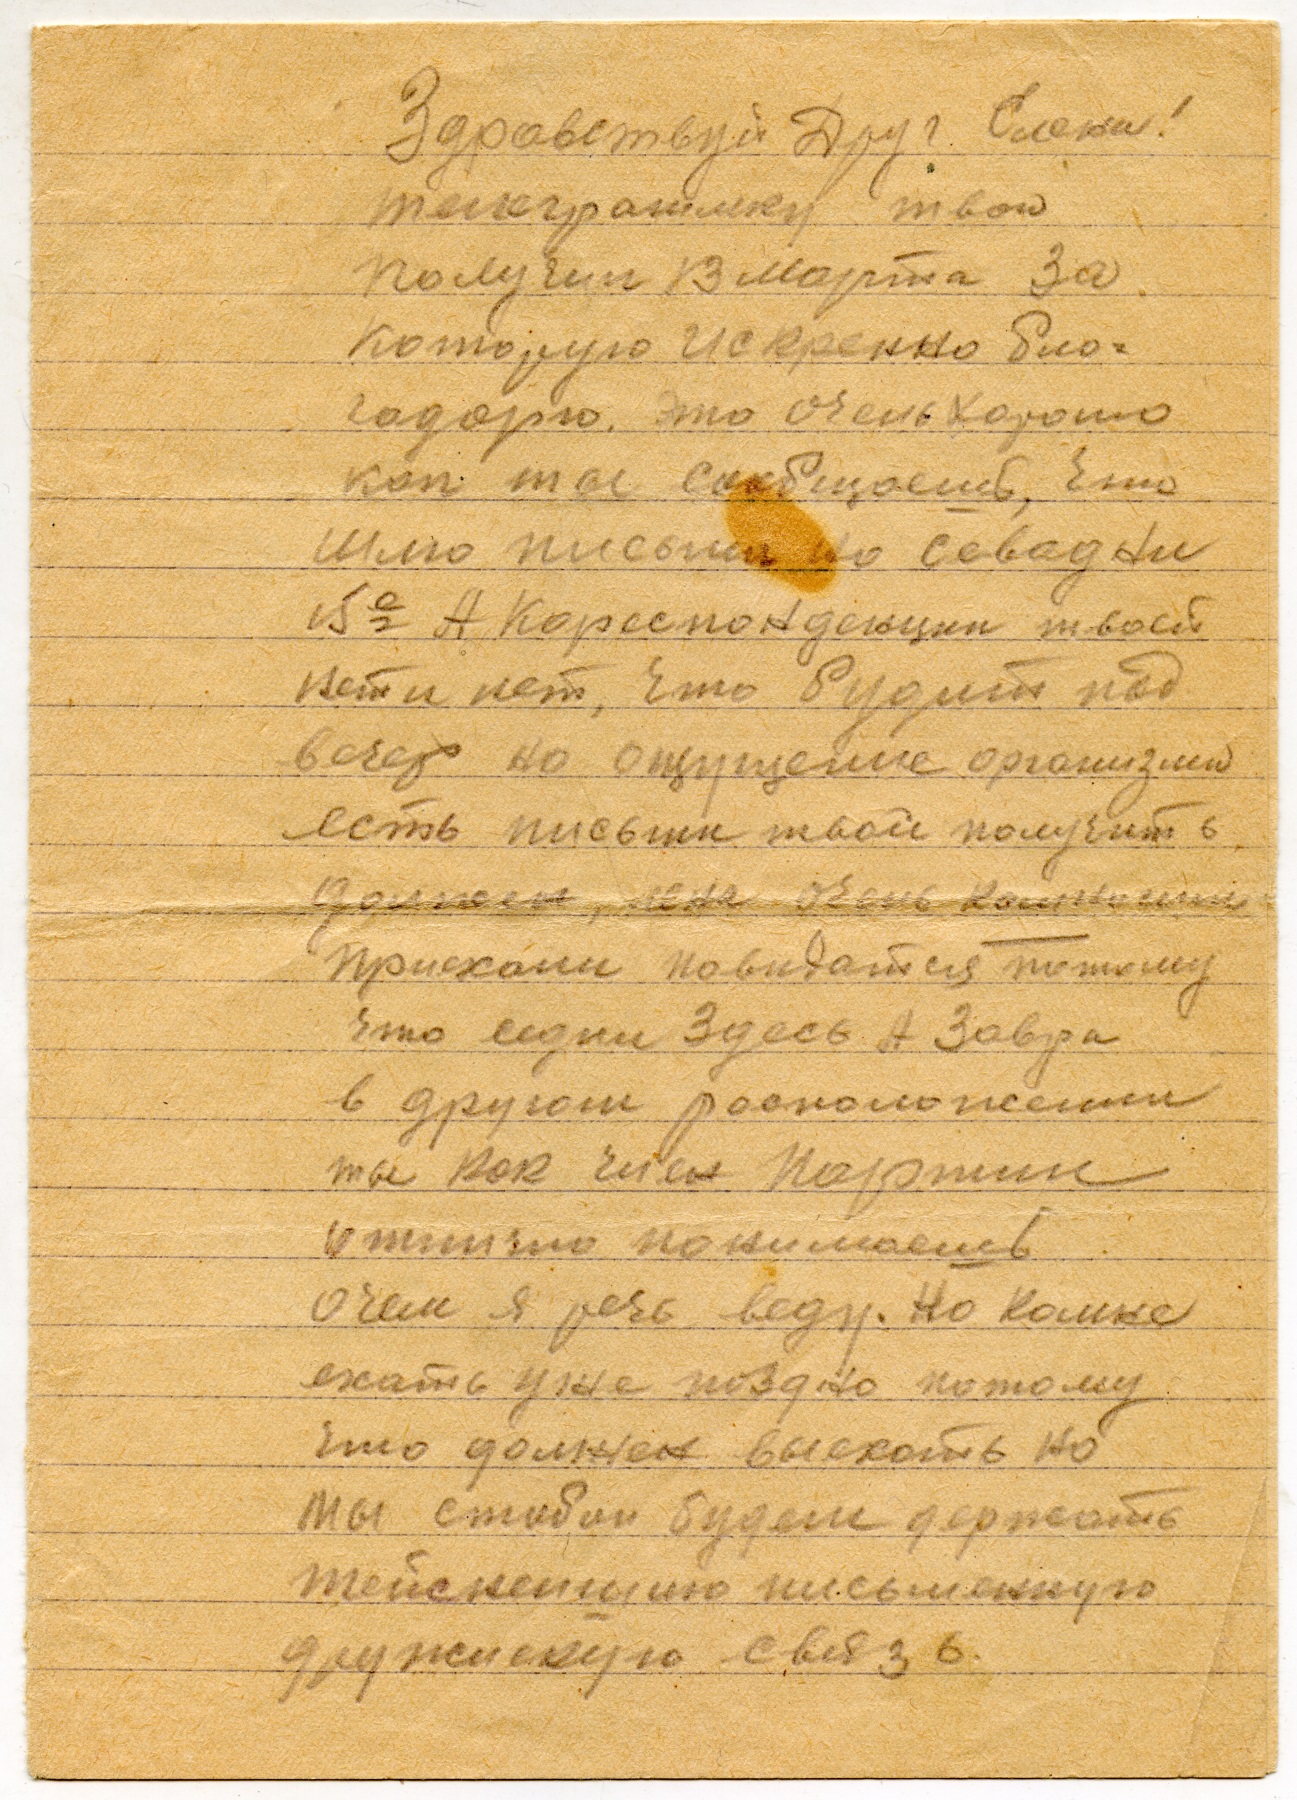 Здравствуй Друг Елена!
телеграммку твою
получил 13 марта За
которую Искренно бла=
гадарю. Это очень хорошо
как ты сообщаешь, что
шлю письмы но севадни
15го А Кореспонденции твоей
нет и нет, что будит под
вечер но ощущение организма
есть письмы твои получить
должен, очень
приехали повидатся потому
что седни Здесь А Завра
в другом расположении
ты как член Партии
отлично понимаешь
очем я речь веду. Но камне
ехать уже поздно потому
что должен выехать но
мы стобой будем держать
письменную
дружескую связь.